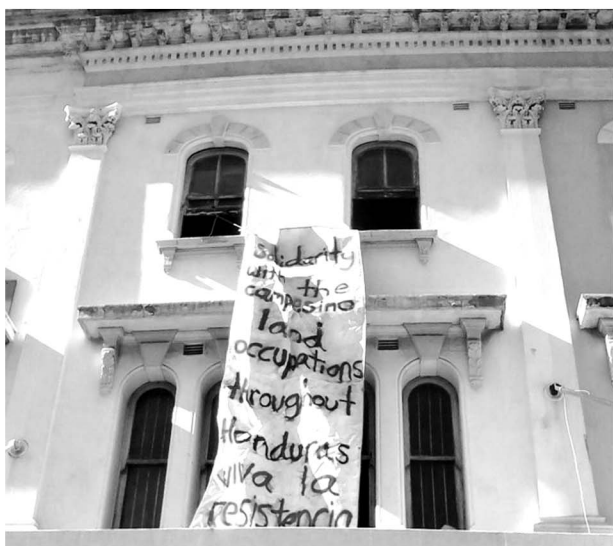 Solidarity
with the
campasino
land
occupations
throughout
Honduras
viva la
resistencia